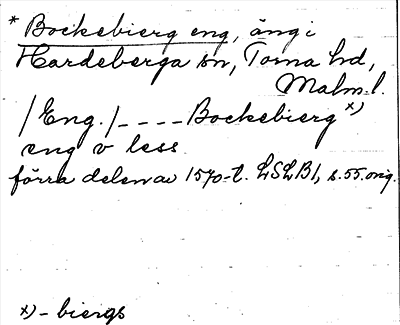 * Bockebierg eng, äng i
Hardeberga sn, Torna hd,
Malm. l.
/Eng./ _ _ _ _ Bockebierg x)
eng v less
förra delen av 1570-t. LSLB1, s. 55. orig.
x) - biergs